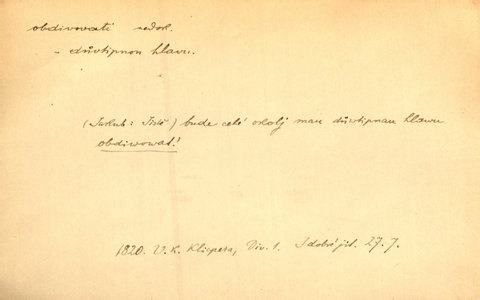 obdivovati nedok.
– důvtipnou hlavu.
(Jakub: Jiné) bude celé okolj mau důwtipnau hlawu
obdiwowat!
1820. V. K. Klicpera, Div. 1. I dobré jit. 27. 7.